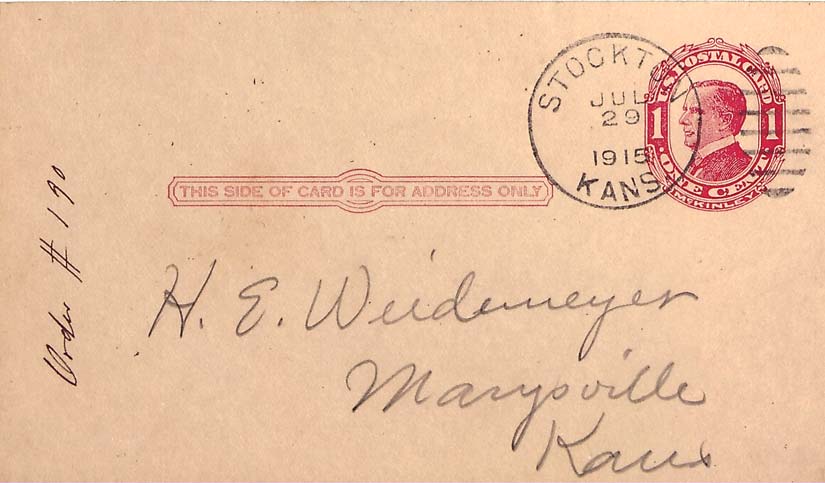 STOCKTON
JUL
29
1915
KANS.
U.S. POSTAL CARD
1 1
· ONE CENT ·
McKINLEY
THIS SIDE OF CARD IS FOR ADDRESS ONLY
Order # 190
H. E. Weidemeyer
Marysville
Kans